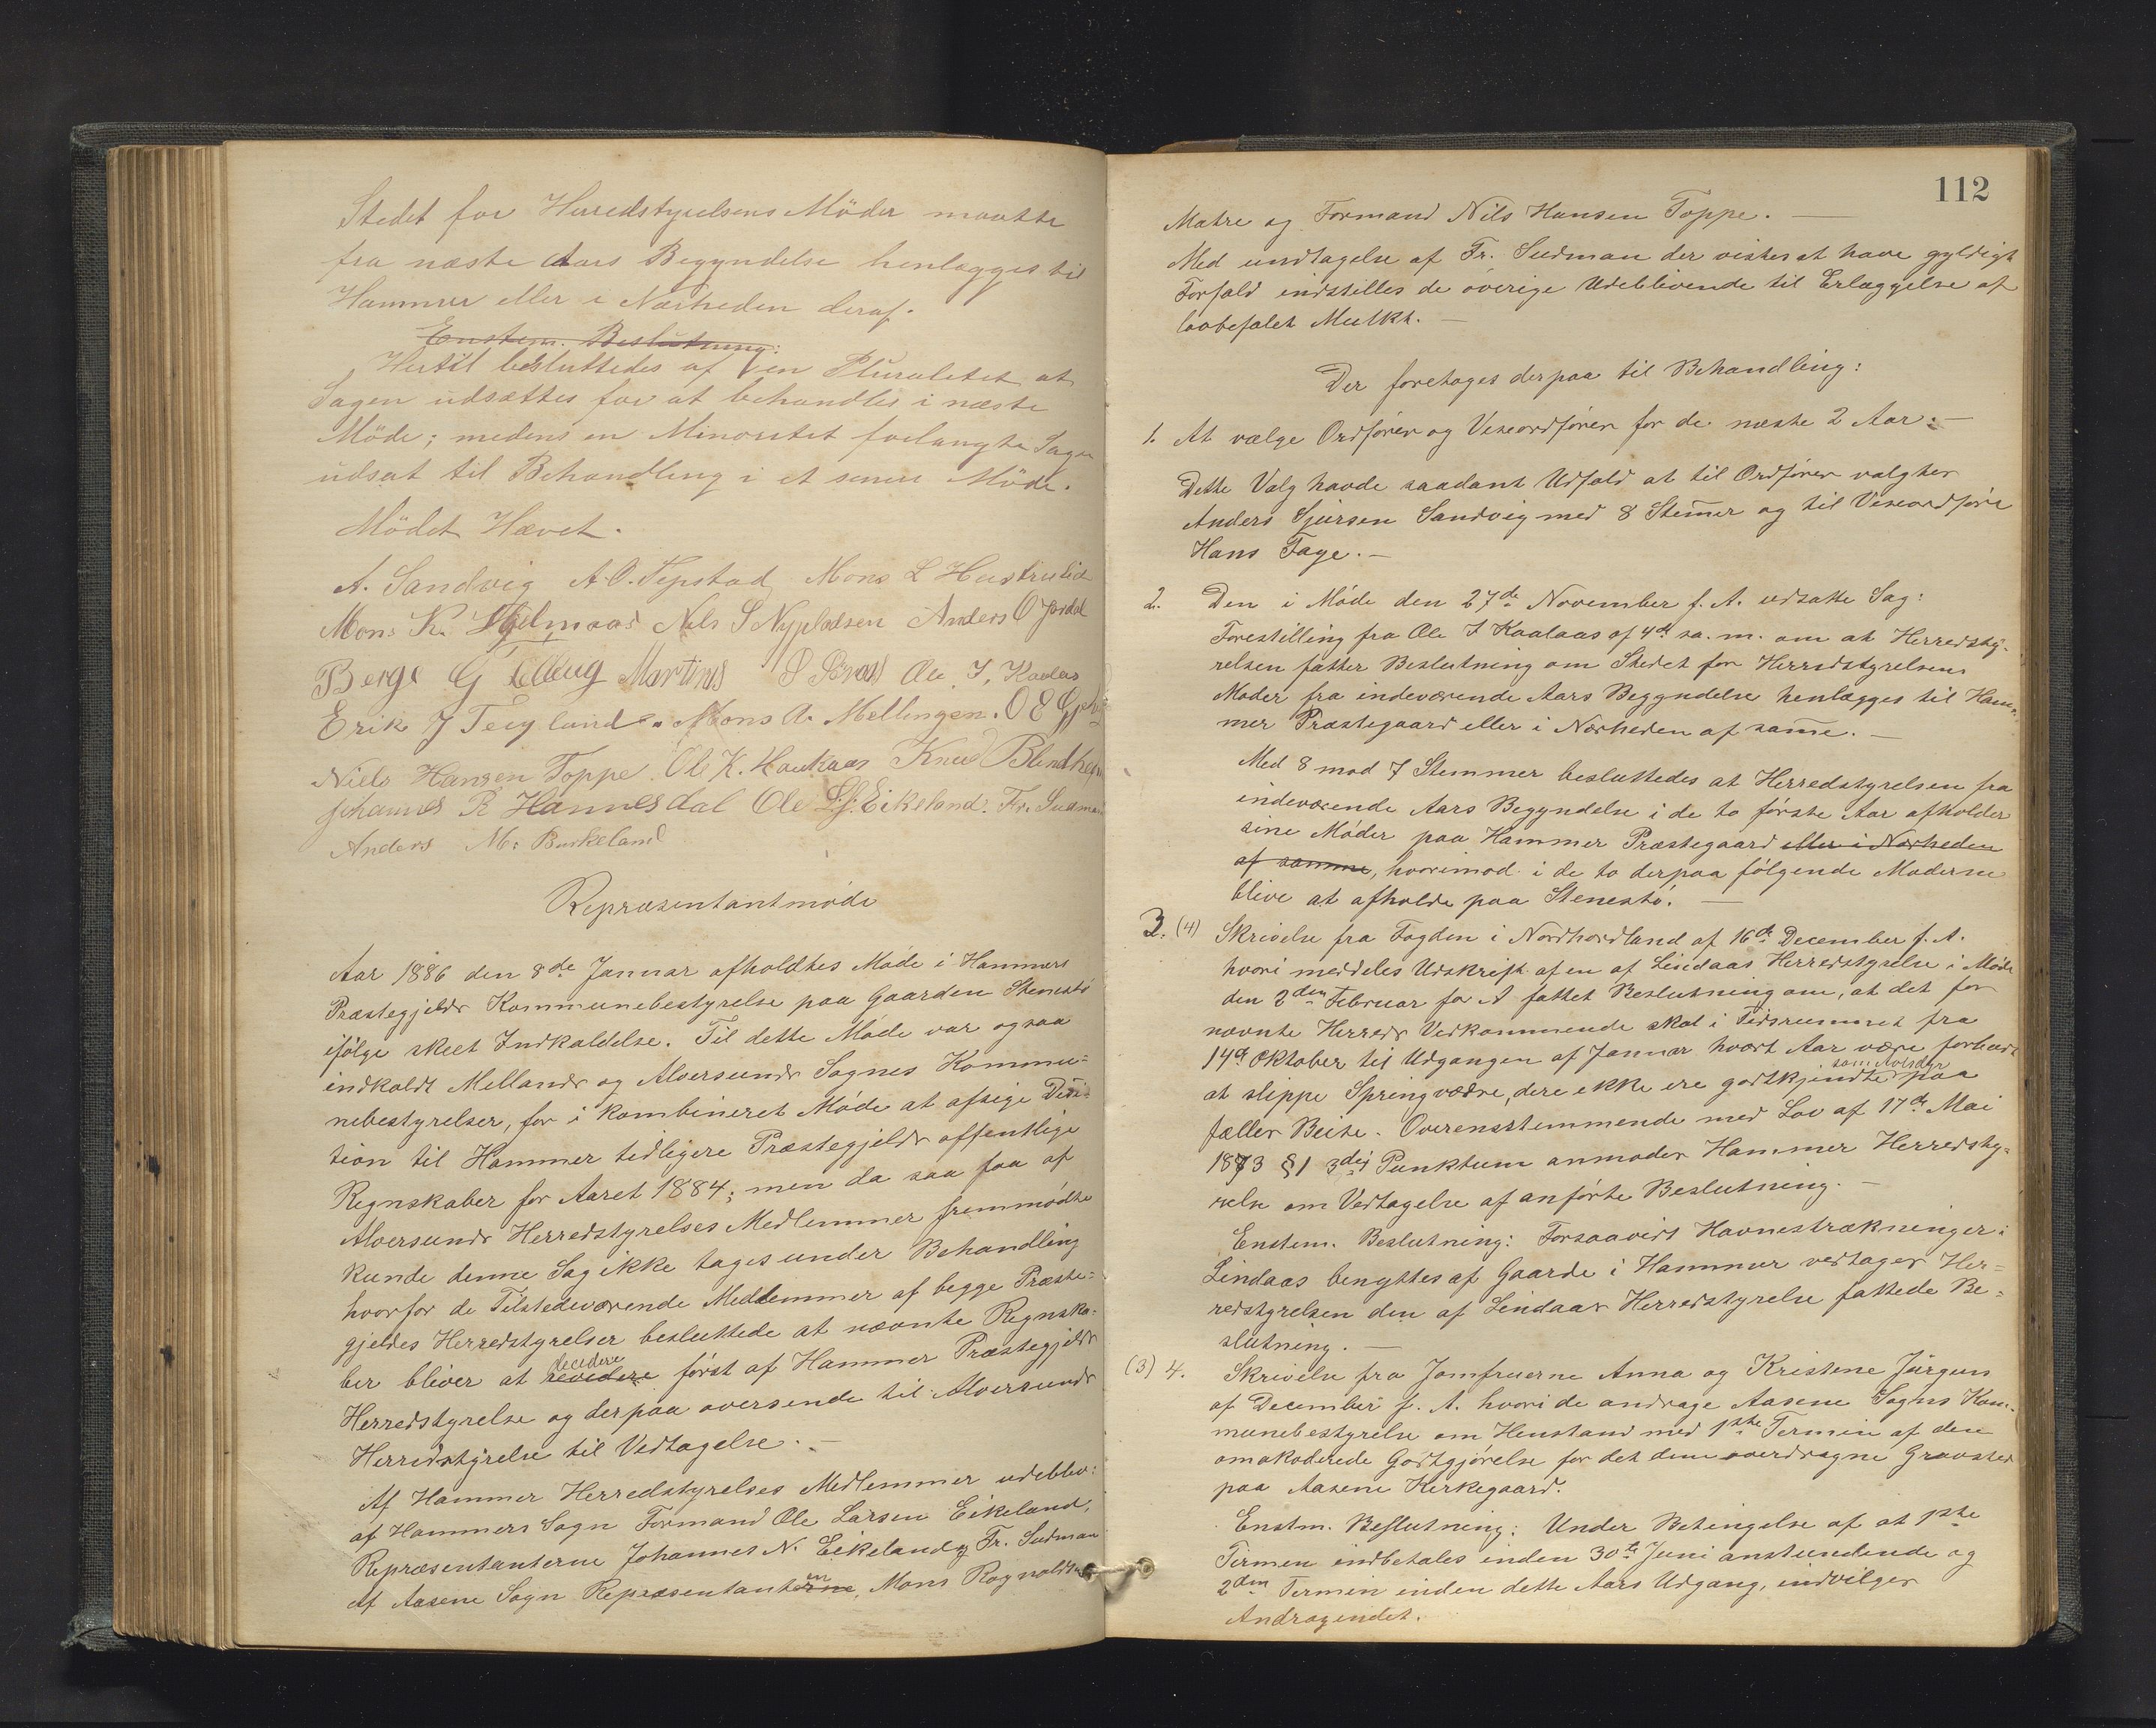 Stedet for Herredstyrelsens Möder maatte
fra næste Aars Begyndelse henlægges til
Hammer eller i Nærheden deraf.
Enstem. Beslutning:
Hertil besluttedes af en Pluralitet at
Sagen udsættes for at behandles i næste
Möde; medens en Minoritet forlangte Sagen
udsat til Behandling i et senere Möde.
Mödet Hævet.
A. Sandvig A. O. Tepstad Mons L Hustrulid
Mons K. Hjelmaas Nels S Nypladsen Anders O Josdal
Berge G Telleug Martins S Ole J. Kaalaas
Erik J Teigland. Mons A. Mellingen. O E
Niels Hansen Toppe. Ole K. Haukaas Knud Blindheim
Johannes R Hannesdal Ole L. Eikeland. Fr. Sudman
Anders M. Burkeland
Repræsentantmöde
Aar 1886 den 8de Januar afholdtes Möde i Hammers
Præstegjelds Kommunebestyrelse paa Gaarden Stenestö
ifölge skeet Indkaldelse. Til dette Möde var ogsaa
indkaldt Mellands og Alversunds Sognes Kommu-
nebestyrelser, for i kombineret Möde at afsige Deci-
tion til Hammer tidligere Præstegjelds offentlige
Regnskaber for Aaret 1884; men da saa faa af
Alversunds Herredstyrelses Medlemmer fremmödte
kunde denne Sag ikke tages under Behandling
hvorfor de Tilstedeværende Medlemmer af begge Præste-
gjeldes Herredstyrelser besluttede at nævnte Regnska-
ber bliver at revidere decidere först af Hammer Præstegjelds
Herredstyrelse og derpaa oversende til Alversunds
Herredstyrelse til Vedtagelse. –
Af Hammer Herredstyrelses Medlemmer udeblev:
af Hammers Sogn Formand Ole Larsen Eikeland,
Repræsentanterne Johannes N. Eikeland og Fr. Sudman
Af Aasene Sogn Repræsentanterne en Mons Rognaldsen
112
Matre og Formand Nils Hansen Toppe. –
Med undtagelse af Fr. Sudman der vistes at have gyldigt
Forfald indstilles de överige Udeblivende til Erlæggelse af
lovbefalet Mulkt. –
Der foretages derpaa til Behandling:
1. At vælge Ordförer og Viseordförer for de næste 2 Aar. –
Dette Valg havde saadant Udfald at til Ordförer valgtes
Anders Sjursen Sandvig med 8 Stemer og til Viseordföre
Hans Fage. –
2. Den i Möde den 27de November f. A. udsatte Sag:
Forestilling fra Ole J Kaalaas af 4de sa. m. om at Herredsty-
relsen fatter Beslutning om Stedet for Herredstyrelsens
Möder fra indeværende Aars Begyndelse henlægges til Ham-
mer Præstegaard eller i Nærheden af same. –
Med 8 mod 7 Stemmer besluttedes at Herredstyrelsen fra
indeværende Aars Begyndelse i de to förste Aar afholder
sine Möder paa Hammer Præstegaard eller i Nærheden
af samme, hvorimod i de to derpaa fölgende Möderne
blive at afholde paa Stenestö. –
3. (4) Skrivelse fra Fogden i Nordhordland af 16de December f. A.
hvori meddeles Udskrift af en af Lindaas Herredstyrelse i Möde
den 2den Februar for A fattet Beslutning om, at det for
nævnte Herreds Vedkommende skal i Tidsrummet fra
14de Oktober til Udgangen af Januar hvert Aar være forbudt
at slippe Springvædre, dere ikke ere godtkjendte som Avlsdyr paa
fælles Beite. Overensstemmende med Lov af 17de Mai
1873 § 1 3die Punktum anmoder Hammer Herredsty-
relse om Vedtagelse af anförte Beslutning. –
Enstem. Beslutning: Forsaavidt Havnestrækninger i
Lindaas benyttes af Gaarde i Hammer vedtager Her-
redstyrelsen den af Lindaas Herredstyrelse fattede Be-
slutning. –
(3) 4. Skrivelse fra Jomfruerne Anna og Kristene Jürgens
af December f. A. hvori de andrage Aasene Sogns Kom-
munebestyrelse om Henstand med 1ste Termin af den
omakoderede Godtgjörelse for det dem overdragne Gravsted
paa Aasene Kirkegaard.
Enstm. Beslutning: Under Betingelse af at 1ste
Termen indbetales inden 30te Juni anstundende og
2den Termin inden dette Aars Udgang, indvilges
Andragendet.